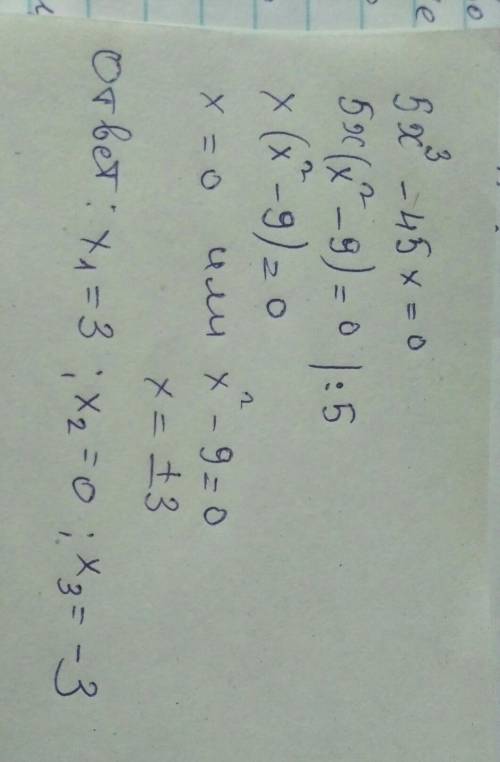 5x³ - 45x = 0
5x(x² - 9) = 0 |:5
x(x² - 9) = 0
x = 0 или x² - 9 = 0
x = ±3
Ответ: x₁ = 3 ; x₂ = 0 ; x₃ = -3